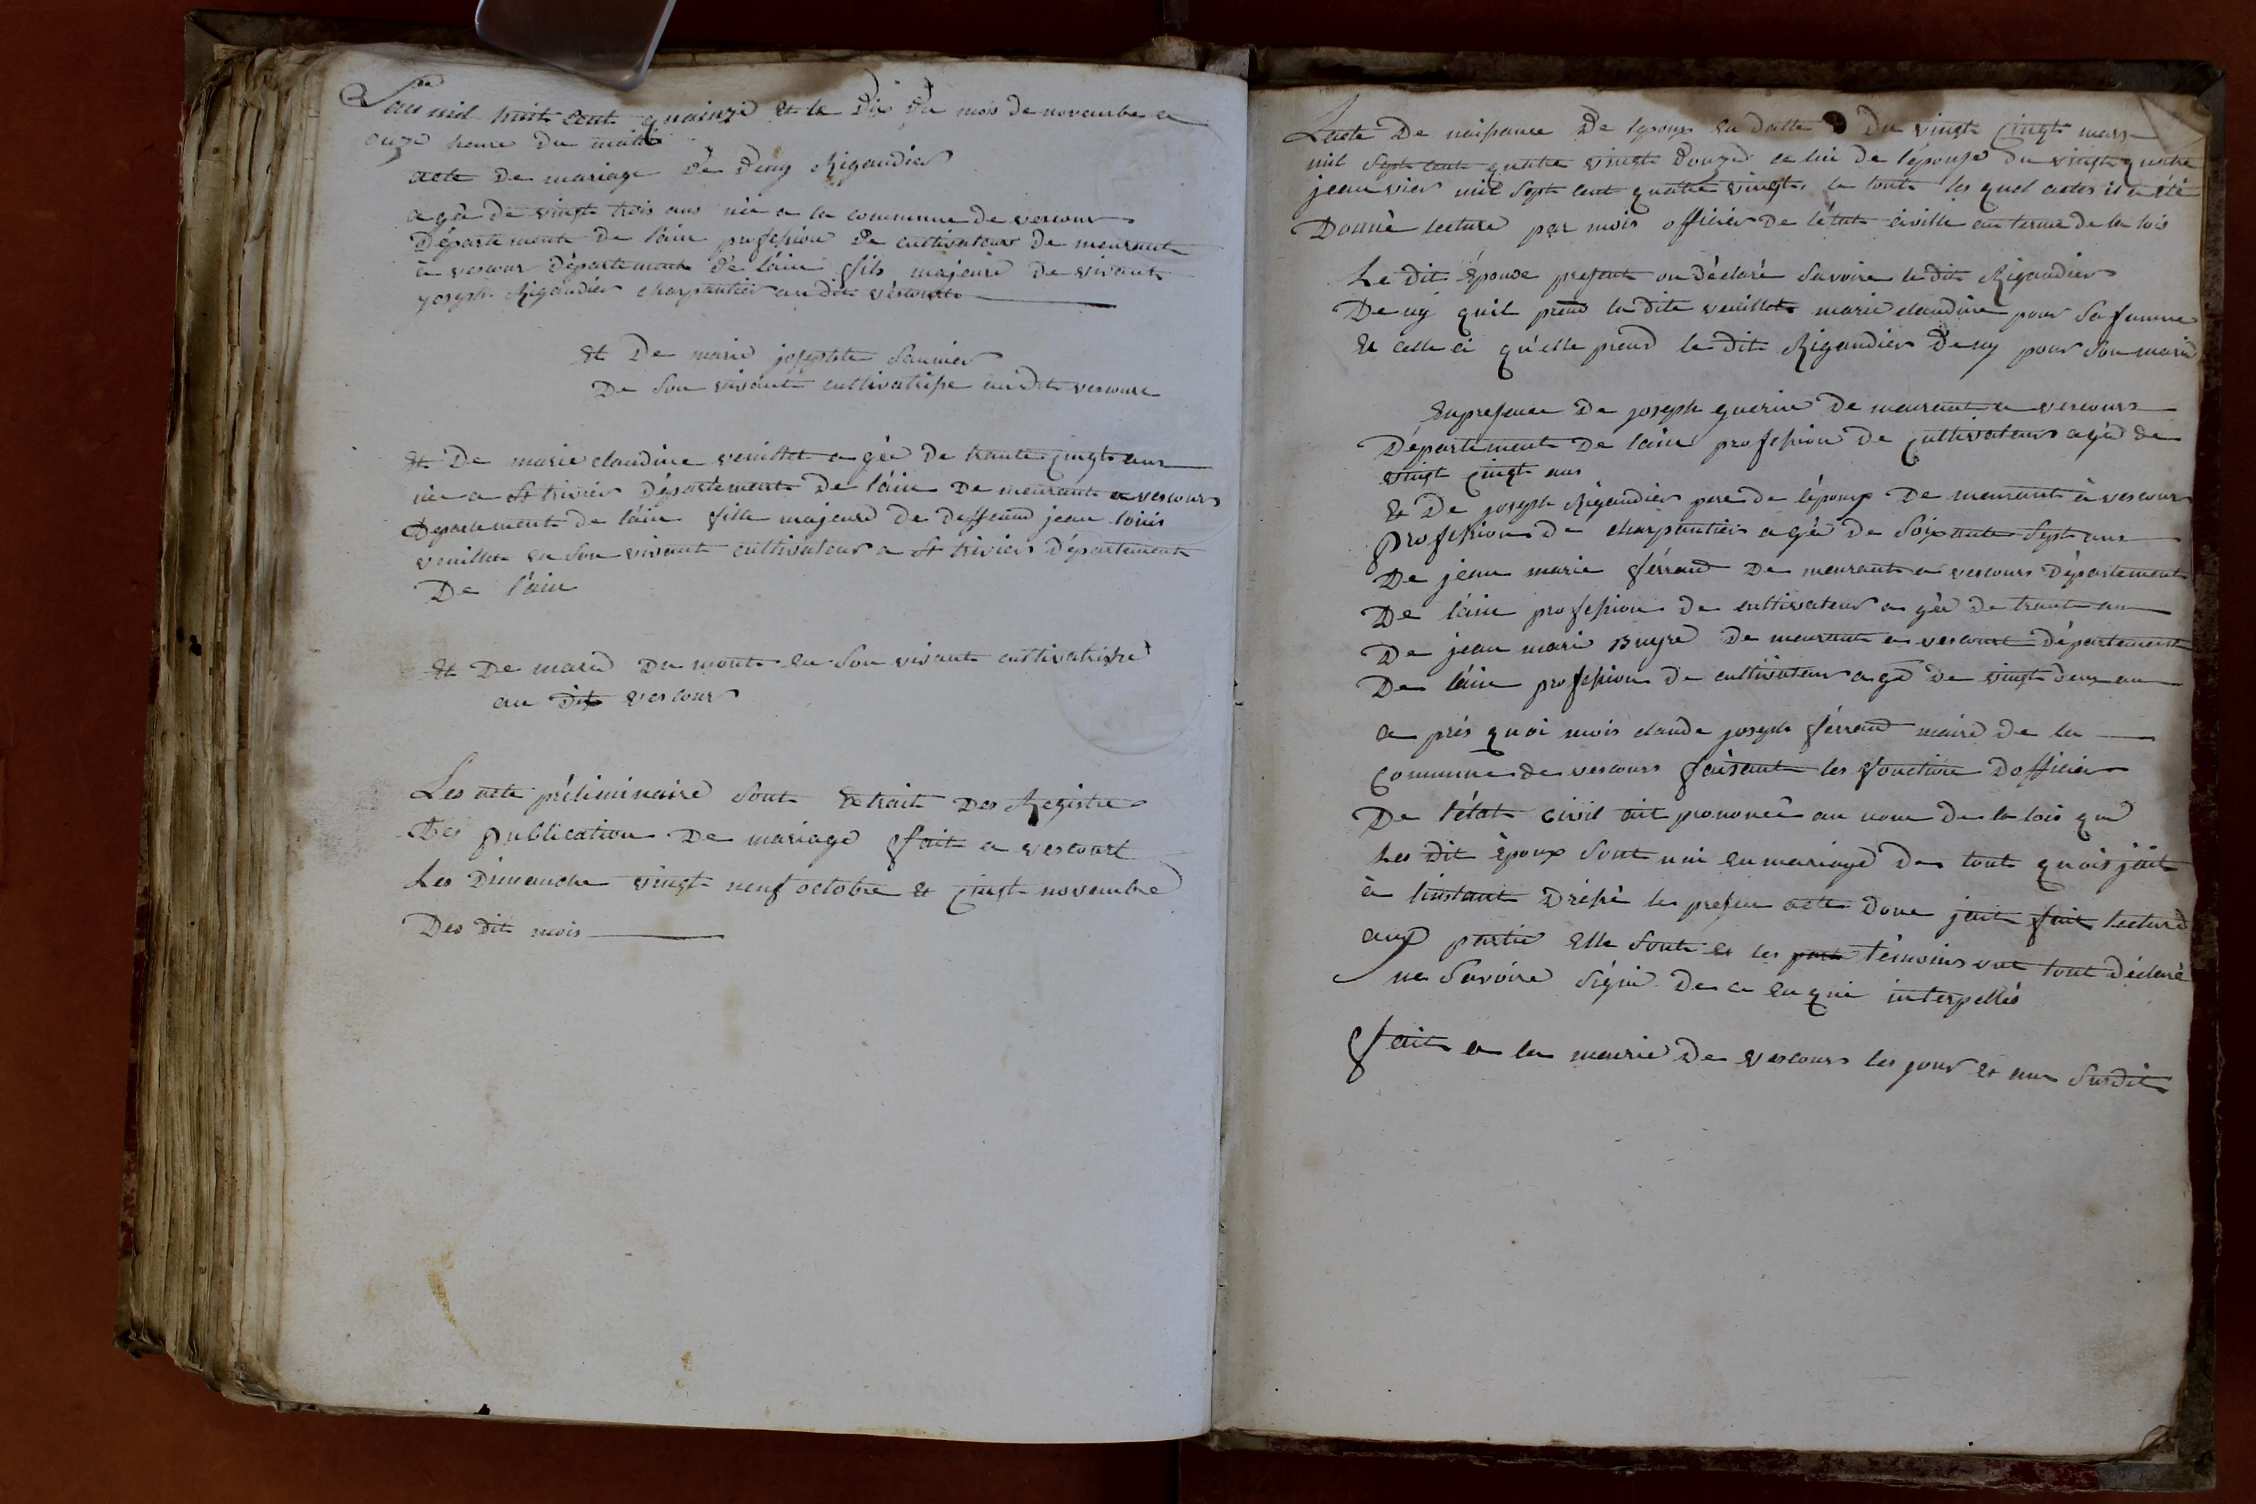 Lan mil huit cent quainze et le Dix du mois de novembre a
onze heure Du matin
acte De mariage De Deny Rigaudier
agée de vingt trois ans née a la commune de vescours
Département De l'ain profession De cultivateur De meurant
à vescour Département De l'ain fils majeure De vivant
joseph Rigaudier charpantier audit vescour
et De marie josephte Saunier
De Son vivant cultivatrisse audit vescours
et De marie claudine veuillet agée De trante cinqt ans
née a St trivier Département De l'ain De meurant a vescours
Département De l'ain fille majeure De Deffeand jean louis
veuillet en Son vivant cultivateur a St trivier Département
De l'ain
et De marie Du mont en Son vivant cultivatrisse
au Dit vescours
Les acte préliminaire Sont Extrait Des Registre
Des publication De mariage fait a vescourt
Les Dimanche vingt neuf octobre et cinqt novembre
Des dit mois
Lacte De naissance De lepoux en Datte Du vingt cinqt mars
mil Sept cent quatre vingt Douze celui De l'épouse Du vingt quatre
jeanvier mil Sept cent quatre vingt, le tout les quel actes il a été
Donné lecture par mois officier De létat civille au terme de la lois
Le dit Epouse present on Déclaré Savoire ledit Rigaudier
Deny quil prend la dite veuillet marie claudine pour Sa femme
Et celle ci qu'elle prend le dit Rigaudier Deny pour Son marie
En presence De joseph guerin De meurant a vescours
Département De l'ain profession De cultivateur agée De
vingt cinqt ans
Et De joseph Rigaudier pere de lépoux De meurant à vescour
profession De charpantier agée De Soixante Sept ans
De jean marie férrand De meurant a vescours Département
De l'ain profession De cultivateur agée De trante an
De jean mari Bruyre De meurant a vescourt Département
De l'ain profession De cultivateur agé De vingt deux an
a prés quoi mois claude joseph férrand maire De la
Commune de vescours faisant les fonction Dofficier
De l'état civil ait prononcé au nom De la lois que
Les dit Epoux Sont uni En mariage De tout quois jait
à linstant Dressé le presen acte Dont jait fait lecture
aux partie Elle Sont et les témoins ont tout Déclaré
ne Savoire Signé De ce enqui interpellés
fait a la mairie De vescours les jour Et an Susdit